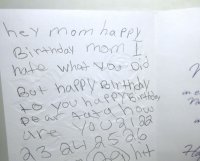 hey mom happy
Birthday mom I
hate what you Did
But happy Birthday
to you happy Birthday
Dear tata how
are you 21 22
23 24 25 26
hit